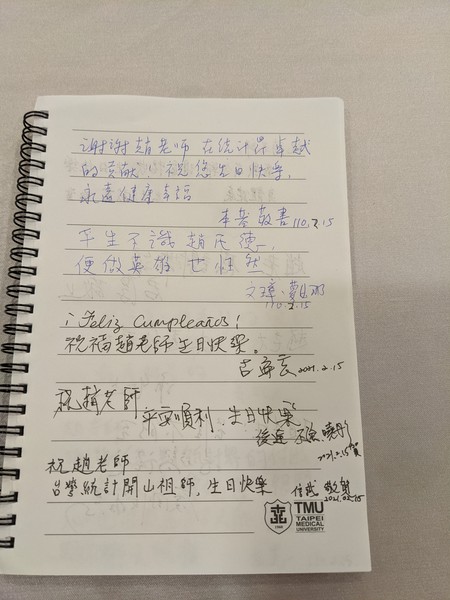 謝謝趙老師 在統計界卓越
的貢獻，祝您生日快樂，
永遠健康幸福
敬書 110.2.15
平生不識趙民德，
便做英雄也惘然
110.2.15
¡Feliz Cumpleaños!
祝福趙老師生日快樂。
2021.2.15
祝趙老師
平安順利，生日快樂
後進 曉彤
2021.2.15賀
祝趙老師
台灣統計開山祖師，生日快樂
信成 敬賀
2021.02.15
TMU
TAIPEI
MEDICAL
UNIVERSITY
1960